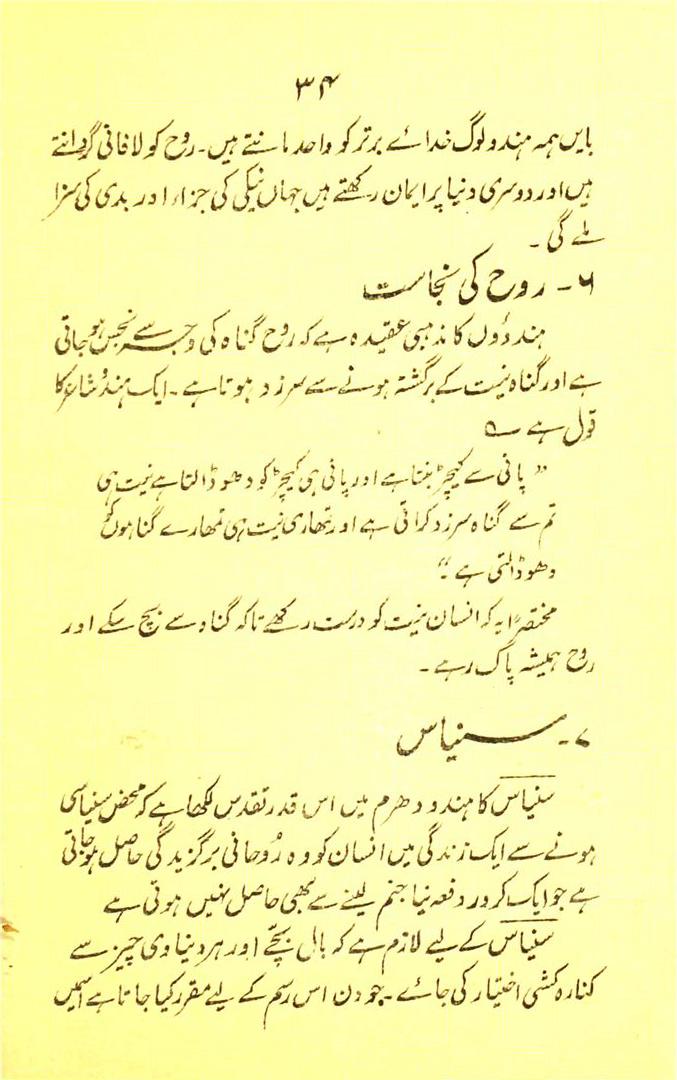 ۳۴
بایں ہمہ ہندو لوگ خدائے برتر کو واحد مانتے ہیں۔ روح کو لافانی گردانتے
ہیں اور دوسری دنیا پر ایمان رکھتے ہیں جہاں نیکی کی جزاء اور بدی کی سزا
ملے گی۔
۶۔ روح کی نجاست
ہندوؤں کا مذہبی عقیدہ ہے کہ روح گناہ کی وجہ سے نجس ہو جاتی
ہے اور گناہ نیت کے برگشتہ ہونے سے سرزد ہوتا ہے۔ ایک ہندو شاعر کا
قول ہے ؎
” پانی سے کیچڑ بنتا ہے اور پانی ہی کیچڑ کو دھو ڈالتا ہے نیت ہی
تم سے گناہ سرزد کراتی ہے اور تمھاری نیت ہی تمھارے گناہوں کو
دھو ڈالتی ہے “
مختصراً یہ کہ انسان نیت کو درست رکھے تاکہ گناہ سے بچ سکے اور
روح ہمیشہ پاک رہے۔
۷۔ سنیاس
سنیاس کا ہندو دھرم میں اس قدر تقدس لکھا ہے کہ محض سنیاسی
ہونے سے ایک زندگی میں انسان کو وہ روحانی برگزیدگی حاصل ہو جاتی
ہے جو ایک کرور دفعہ نیا جنم لینے سے بھی حاصل نہیں ہوتی ہے
سنیاس کے لیے لازم ہے کہ بال بچے اور ہر دنیاوی چیز سے
کنارہ کشی اختیار کی جائے۔ جو دن اس رسم کے لیے مقرر کیا جاتا ہے اسمیں